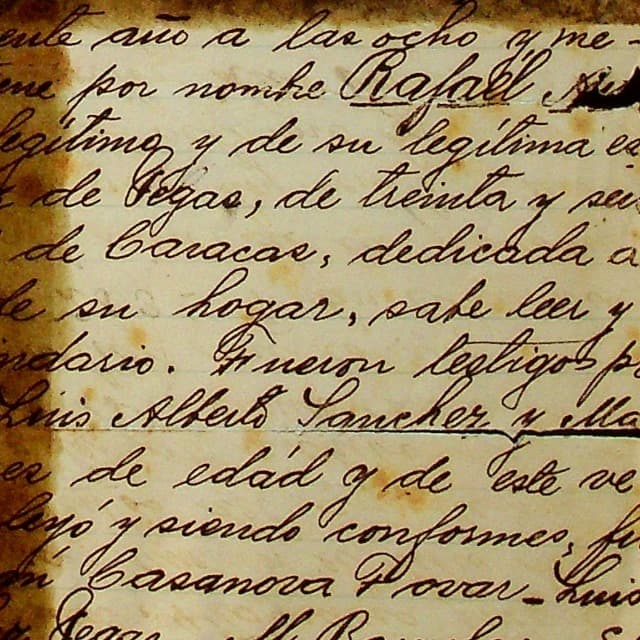 ente año a las ocho y me-
ene por nombre Rafael
legítimo y de su legítima es
de Vegas, de treinta y seis
de Caracas, dedicada a
de su hogar, sabe leer y
ndario. Fueron testigos p
Luis Alberto Sanchez y Ma
es de edad y de este ve
leyó y siendo conformes, fi
Casanova Tovar - Luis
Vegas